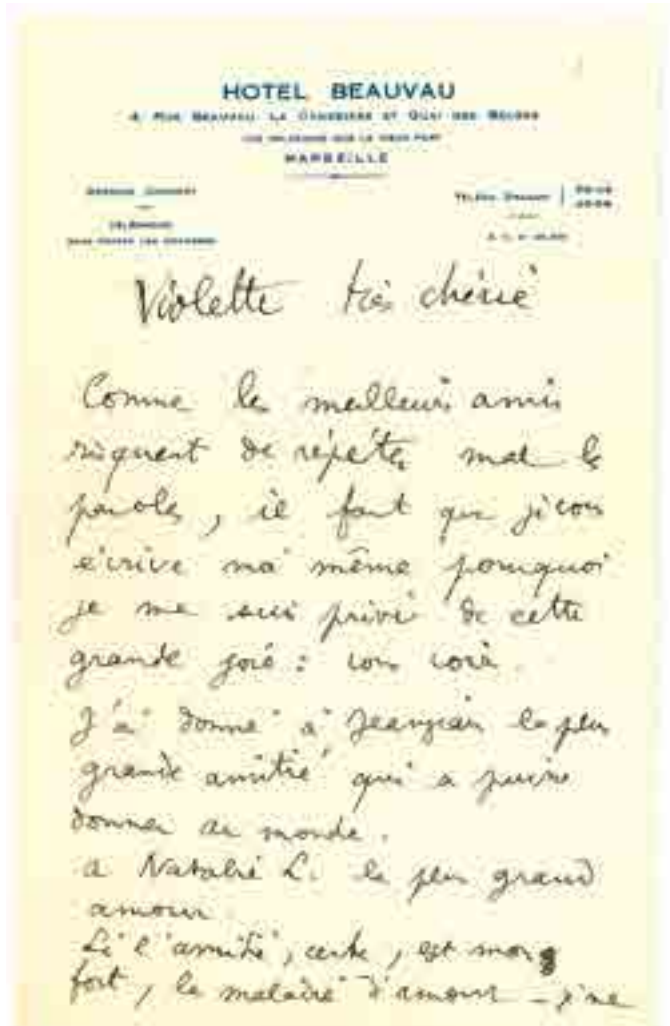 HOTEL BEAUVAU
4, RUE BEAUVAU, LA CANEBIÈRE ET QUAI DES BELGES
VUE SUR LE VIEUX PORT
MARSEILLE
Violette très chérie
Comme les meilleurs amis
risquent de répéter mal les
paroles, il faut que je vous
écrive moi même pourquoi
je me suis privé de cette
grande joie : vous voir.
J'ai donné à Jeanjean la plus
grande amitié qui se puisse
donner au monde.
à Natalie le plus grand
amour.
Si l'amitié, certes, est
fort, la maladie d'amour - je ne